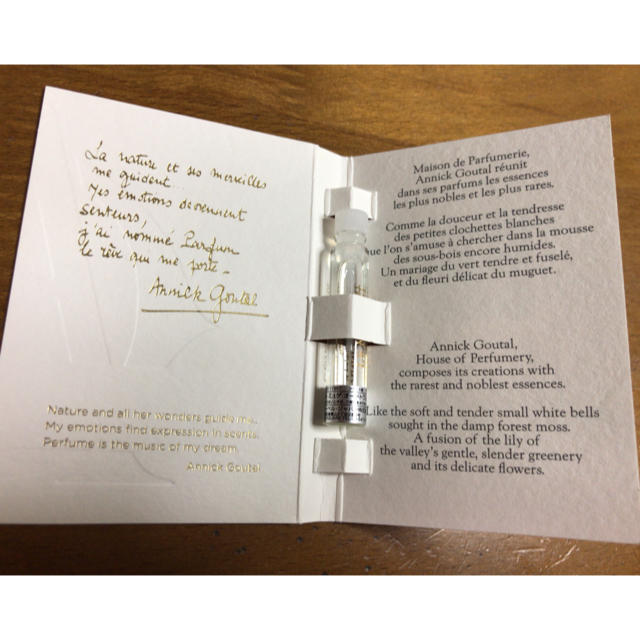 La nature et ses merveilles
me guident...
Mes émotions deviennent
senteurs,
j'ai nommé Parfum
le rêve qui me porte_
Annick Goutal
Nature and all her wonders guide me...
My emotions find expression in scents.
Perfume is the music of my dream.
Annick Goutal
Maison de Parfumerie,
Annick Goutal réunit
dans ses parfums les essences
les plus nobles et les plus rares.
Comme la douceur et la tendresse
des petites clochettes blanches
que l'on s'amuse à chercher dans la mousse
des sous-bois encore humides.
Un mariage du vert tendre et fuselé,
et du fleuri délicat du muguet.
Annick Goutal,
House of Perfumery,
composes its creations with
the rarest and noblest essences.
Like the soft and tender small white bells
sought in the damp forest moss.
A fusion of the lily of
the valley's gentle, slender greenery
and its delicate flowers.